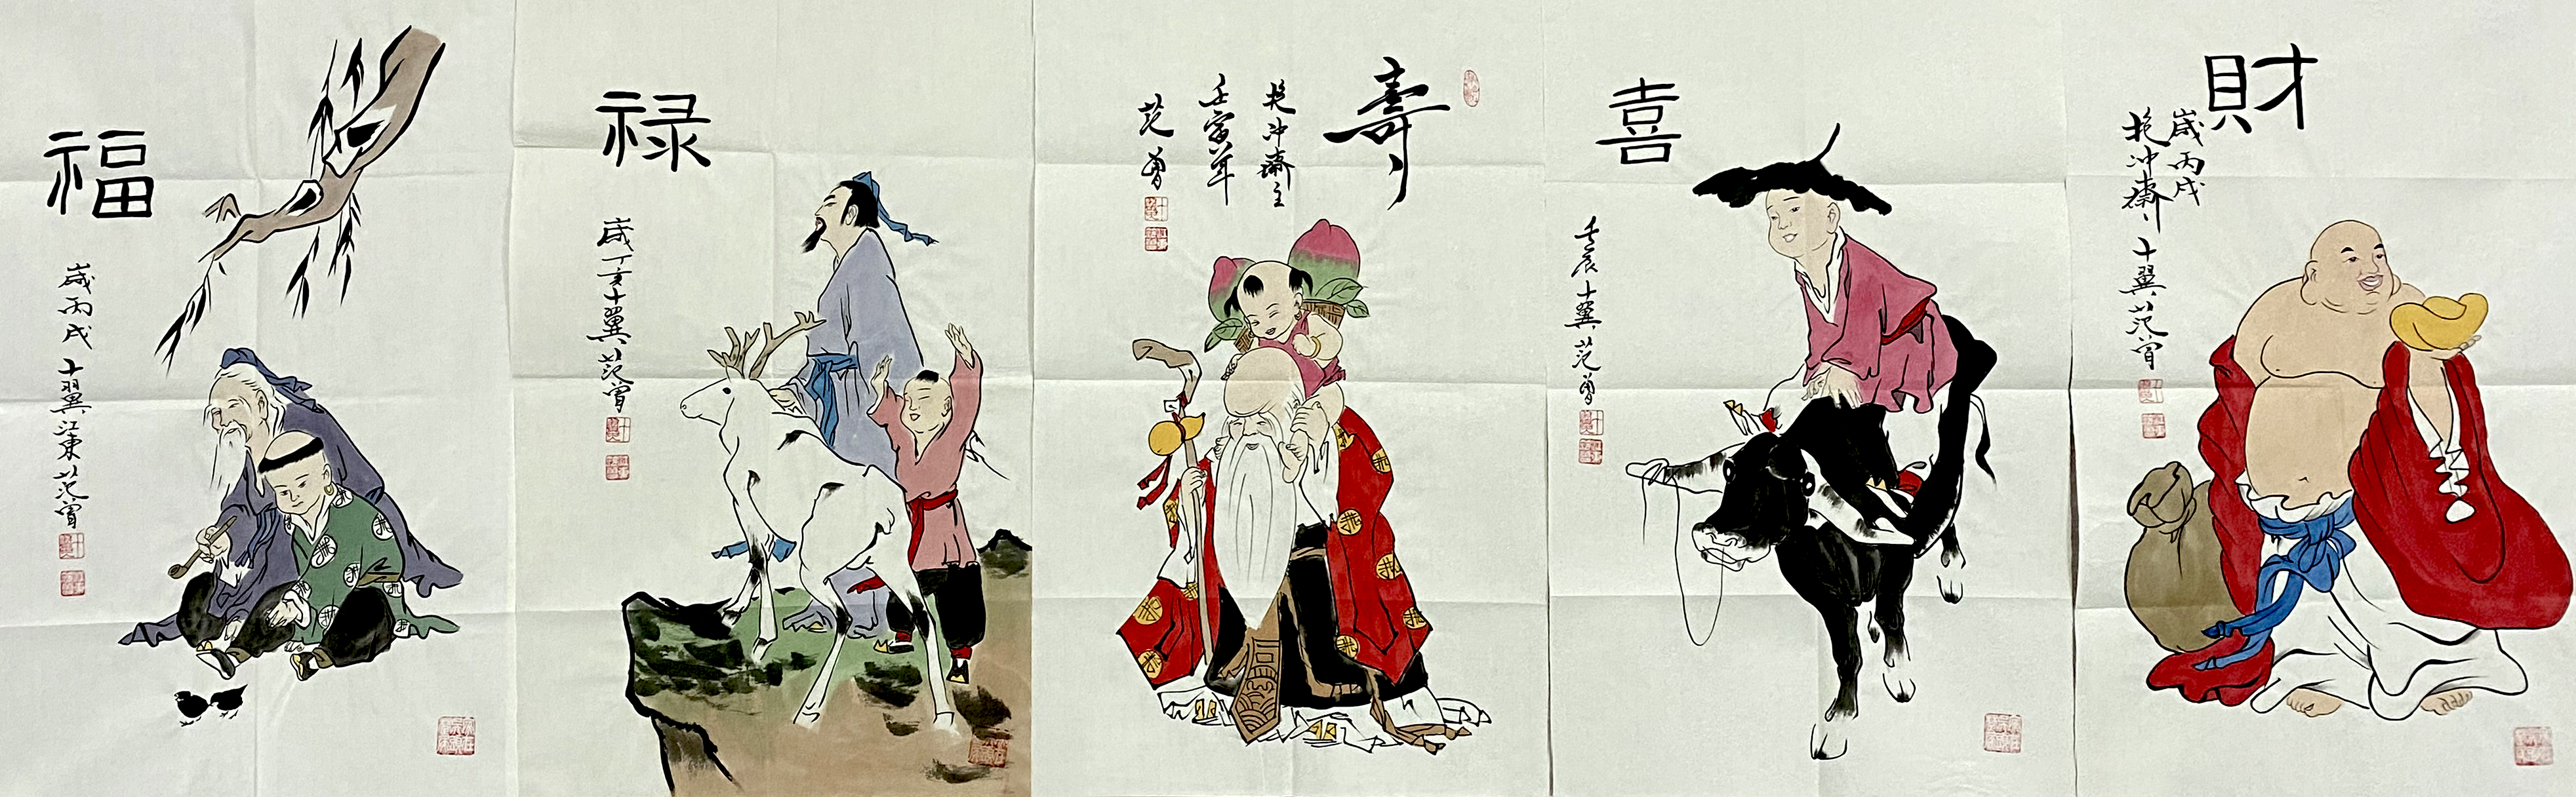 福
歲丙戌十翼江東范曾
禄
歲丁亥十翼范曾
壽
抱冲齋主
壬寅年
范曾
喜
壬辰十翼范曾
財
歲丙戌
抱冲齋十翼范曾